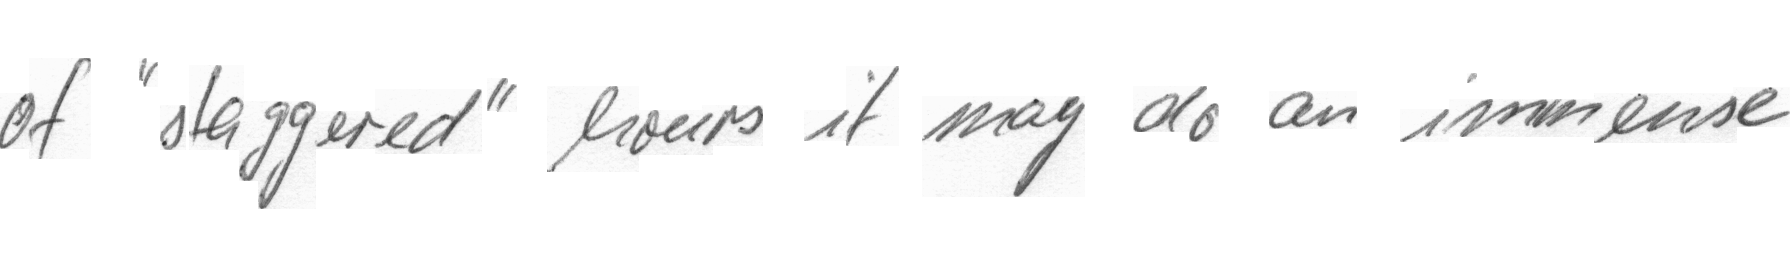 of "staggered" hours it may do an immense